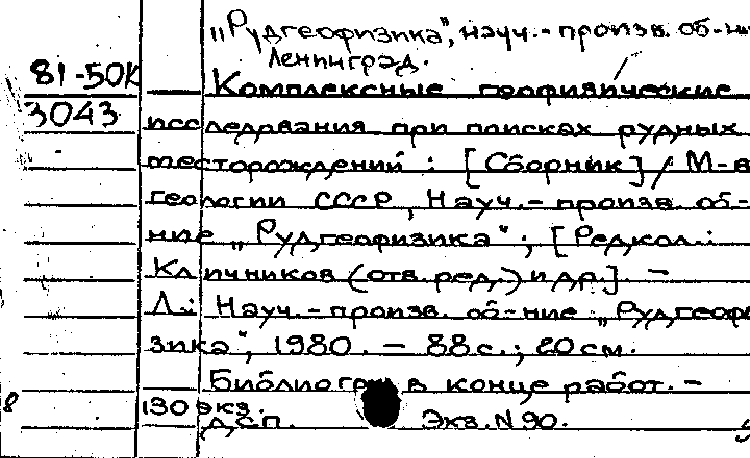 „Рудгеофизика", науч.- произв. об-ние
Ленинград.
81-50К
Комплексные геофизические
3043
исследования при поисках рудных
месторождений : [Сборник] / М-в
геологии СССР, Науч.- произв. об-
ние „Рудгеофизика" ; [Редкол.:
Ключников (отв. ред.) и др.] –
Л.: Науч.- произв. об-ние „Рудгеофи
зика", 1980. – 88 с. ; 20 см.
Библиогр. в конце работ. –
8 130 экз.
Д.С.П. Экз. N 90.